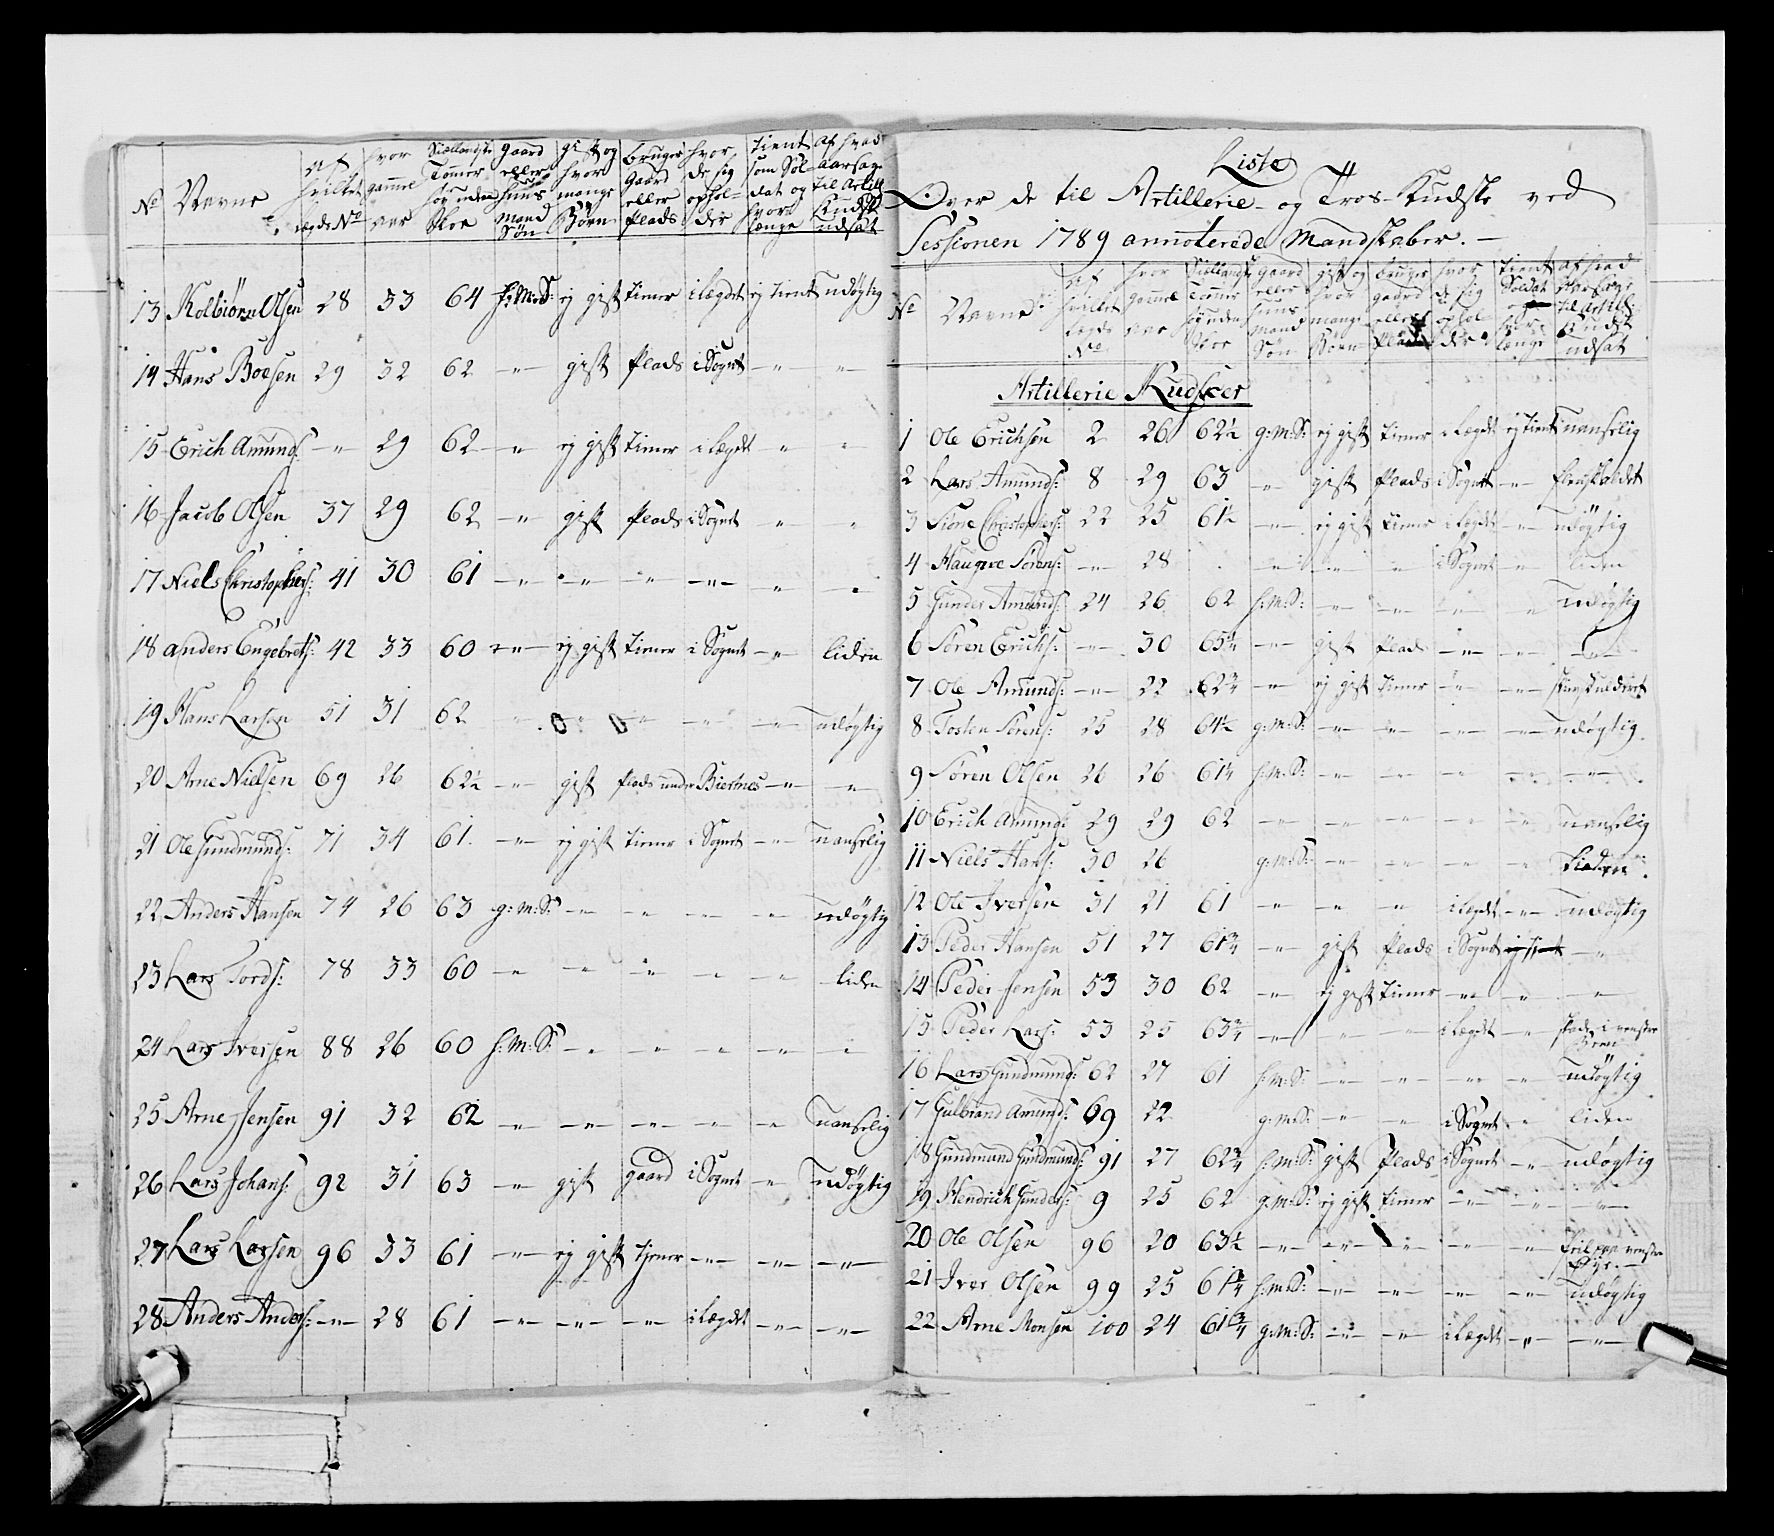 No Navne af hvilket Lægds No hvor gammel aar Siællandske Tommer høy uden Skoe Gaard eller Huus Mand Søn gift og hvor mange Børn bruger Gaard eller Plads hvor de sig ophol- der tient som Sol- dat og hvor længe af hvad aarsag til Artill Kudsk udsat
13 Kolbiørn Olsen 28 33 64 h: M: S: ej gift tiener i Lægdet ej tient udøgtig
14 Hans Boesen 29 32 62 -"- gift Plads i Sognet -"- "
15 Erich Amunds: -"- 29 62 -"- ej gift tiener i Lægdet " "
16 Jacob Olsen 37 29 62 -"- gift Plads i Sognet " "
17 Niels Christophers: 41 30 61 -"- -"- " -"- " "
18 Anders Engebrets: 42 33 60 -"- ej gift tiener i Sognet -"- liden
19 Hans Larsen 51 31 62 " " -"- -"- -"- udøgtig
20 Arne Nielsen 69 26 62½ -"- gift Plads under Biertnes -"- -"-
21 Ole Gundmunds: 71 34 61 -"- ej gift tiener i Sognet -"- uanselig
22 Anders Hansen 74 26 63 g: M: S: -"- -"- -"- -"- udøgtig
23 Lars Tords: 78 33 60 -"- -"- -"- -"- " liden
24 Lars Iversen 88 26 60 h: M: S: -"- -"- -"- -"- -"-
25 Arne Jensen 91 32 62 -"- -"- -"- -"- -"- uanselig
26 Lars Johans: 92 31 63 -"- gift gaard i Sognet -"- udøgtig
27 Lars Larsen 96 33 61 -"- ej gift tjener -"- -"- -"-
28 Anders Anders: -"- 28 61 -"- -"- -"- i Lægdet -"- -"-
Liste
Over de til Artillerie- og Tros-Kudske ved
Sessionen 1789 annoterede Mandskaber. —
No Navne af hvilket Lægds No hvor gammel aar Siællandsk Tommer høy uden Skoe gaard eller huus mand Søn gift og hvor mange Børn bruger gaard eller Plads hvor de sig ophol der tient Soldat og hvor længe af hvad Aarsag til Artill: Kudsk udsat
Artillerie Kudsker
1 Ole Erichsen 2 26 62½ g: M: S: ej gift tiener i Lægdet ej tient uanselig
2 Lars Amunds: 8 29 63 -"- gift Plads i Sognet -"- flenskaldet
3 Sione Christophers: 22 25 61½ -"- ej gift tiener i Lægdet -"- udøgtig
4 Haagene Sörens: -"- 28 -"- -"- -"- i Sognet -"- liden
5 Gunder Amunds: 24 26 62 h: M: S: -"- -"- -"- -"- udøgtig
6 Sören Erichs: -"- 30 65¼ -"- gift Plads -"- -"- -"-
7 Ole Amunds: -"- 22 62¾ -"- ej gift tiener -"- -"-
8 Tosten Sörens: 25 28 64½ g: M: S: -"- -"- -"- -"- udøgtig
9 Sören Olsen 26 26 61¼ h: M: S: -"- -"- -"- -"- -"-
10 Erich Amunds: 29 29 62 -"- -"- -"- -"- -"- uanselig
11 Niels Hans: 30 26 g: M: S: -"- -"- -"- -"- liden
12 Ole Iversen 31 21 61 -"- -"- -"- i Lægdet -"- udøgtig
13 Peder Hansen 51 27 61¾ -"- gift Plads i Sognet ej tient -"-
14 Peder Jensen 53 30 62 -"- ej gift tiener -"- -"- -"-
15 Peder Lars: 53 25 63¾ -"- -"- -"- i Lægdet -"- skade i venstre Been
16 Lars Gundmunds: 62 27 61 h: M: S: -"- -"- -"- -"- udøgtig
17 Gulbrand Amunds: 69 22 g: M: S: -"- -"- i Sognet " liden
18 Gundmand Gundmunds: 91 27 62¾ h: M: S: gift Plads i Sognet -"- udøgtig
19 Hendrich Gunders: 9 25 62 g: M: S: ej gift tiener -"- -"- -"-
20 Ole Olsen 96 20 63½ -"- -"- -"- -"- -"- feil paa venstre Øye. —
21 Iver Olsen 99 25 61¾ h: M: S: -"- -"- -"- -"- udøgtig
22 Arne Monsen 100 24 61¾ g: M: S: -"- -"- i Lægdet -"- -"-